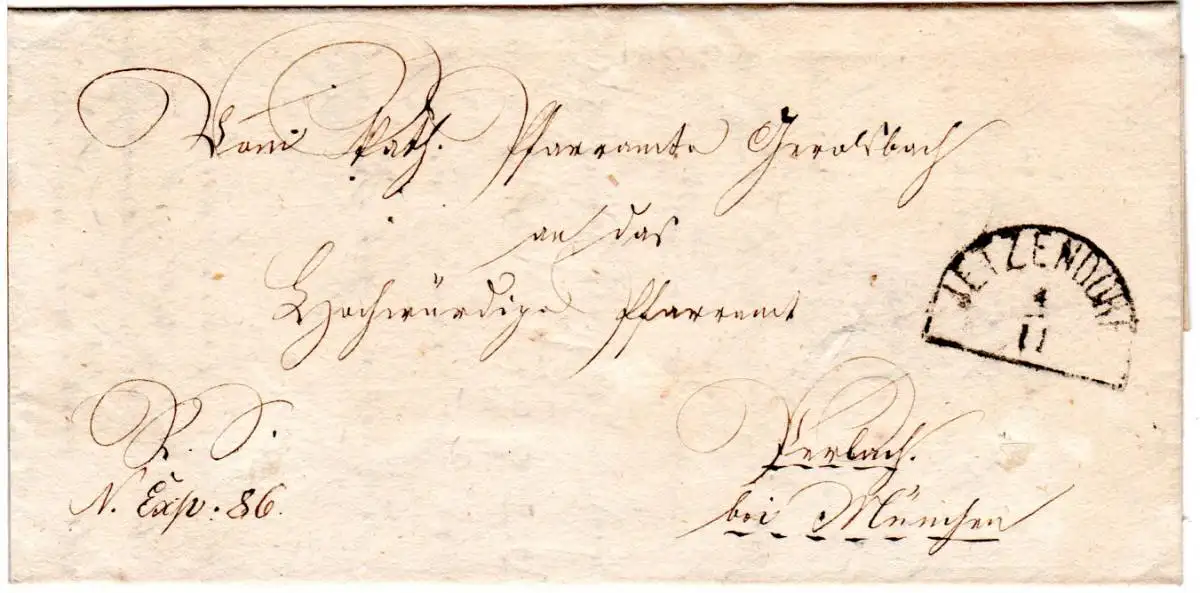 Vom Kath. Pfarramte Gerolsbach
an das
Hochwürdige Pfarramt
JETZENDORF
4
11
R. S.
N. Exp. 86.
Perlach.
bei München